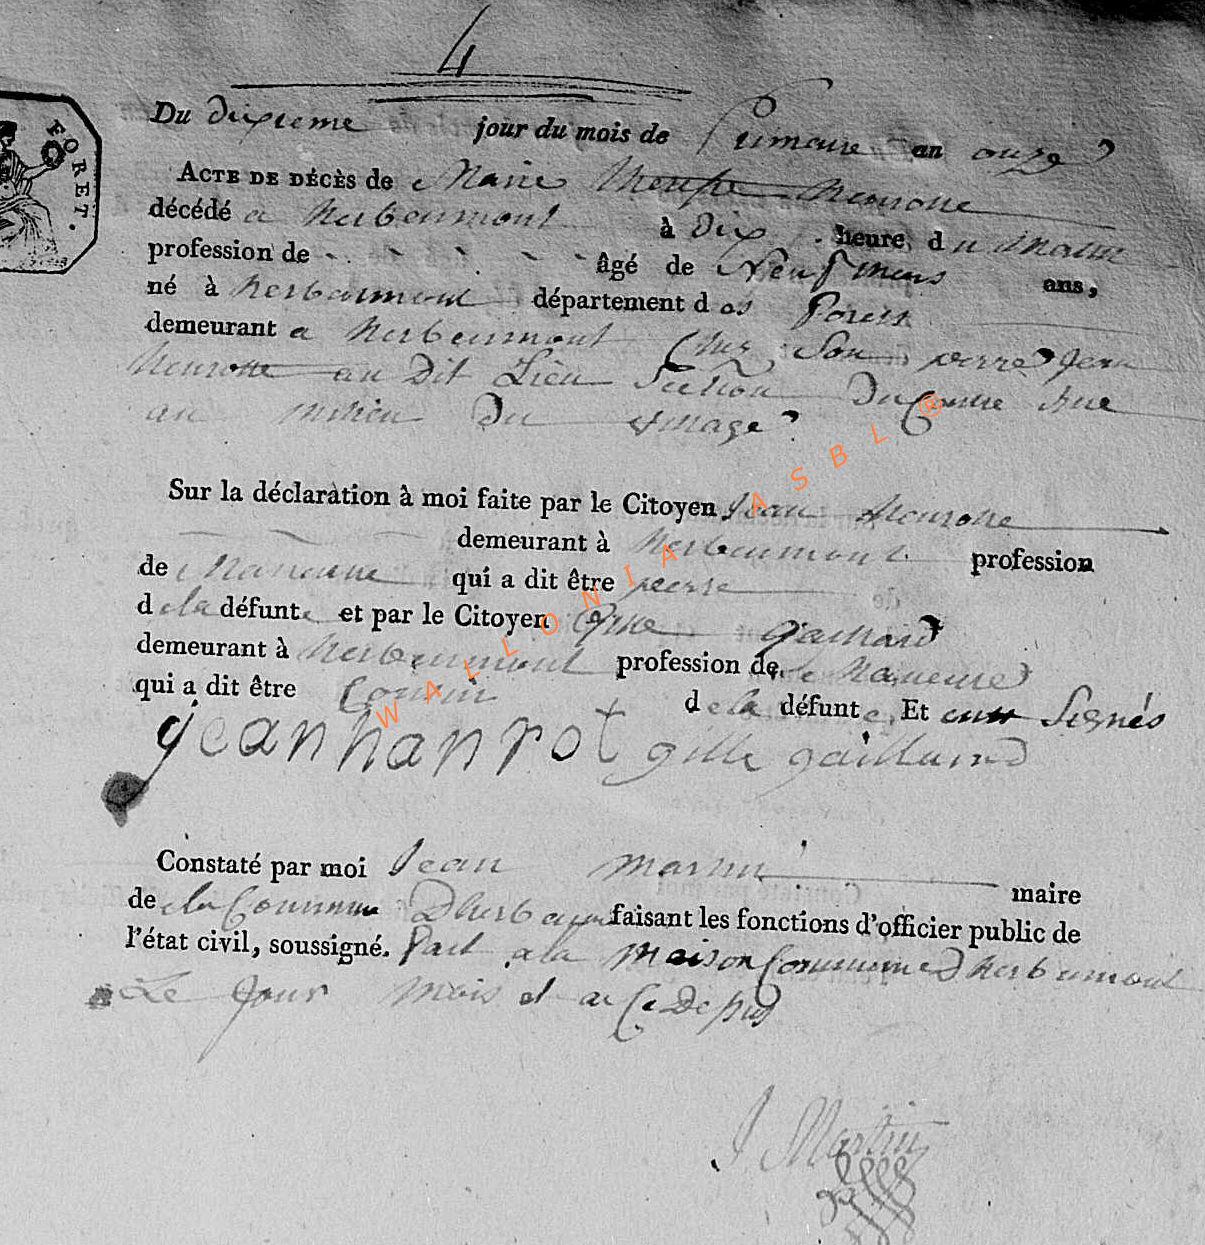 4
FORET.
Du dixieme jour du mois de frimaire an onze
ACTE DE DÉCÈS de Marie
décédé a herbeumont à dix heure, du matin
profession de âgé de Neuf mois ans,
né à herbeumont département des forets
demeurant a herbeumont Chez Son perre Jean
au Dit Lieu Section Du Centre Rue
au milieu Du village
Sur la déclaration à moi faite par le Citoyen Jean
demeurant à herbeumont profession
de Manœuvre qui a dit être perre
de la défunte et par le Citoyen Gille gaillard
demeurant à herbeumont profession de Manœuvre
qui a dit être Cousin de la défunte, Et ont Signés
jean hanrot gille gaillard
Constaté par moi Jean Martin maire
de la Commune Dherbeumont faisant les fonctions d'officier public de
l'état civil, soussigné. fait a la maison Commune Dherbeumont
Le Jour mois et an
J. Martin
WALLONIA ASBL ®